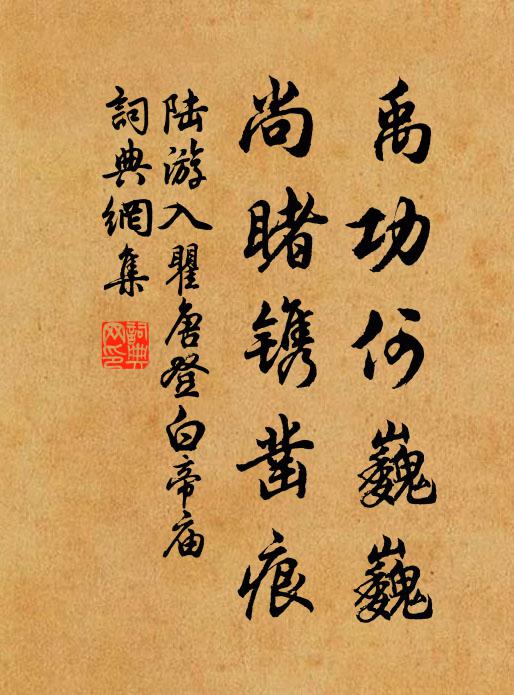 禹功何巍巍
尚睹镌凿痕
陆游入瞿唐登白帝庙
詞典網集
詞典
网印